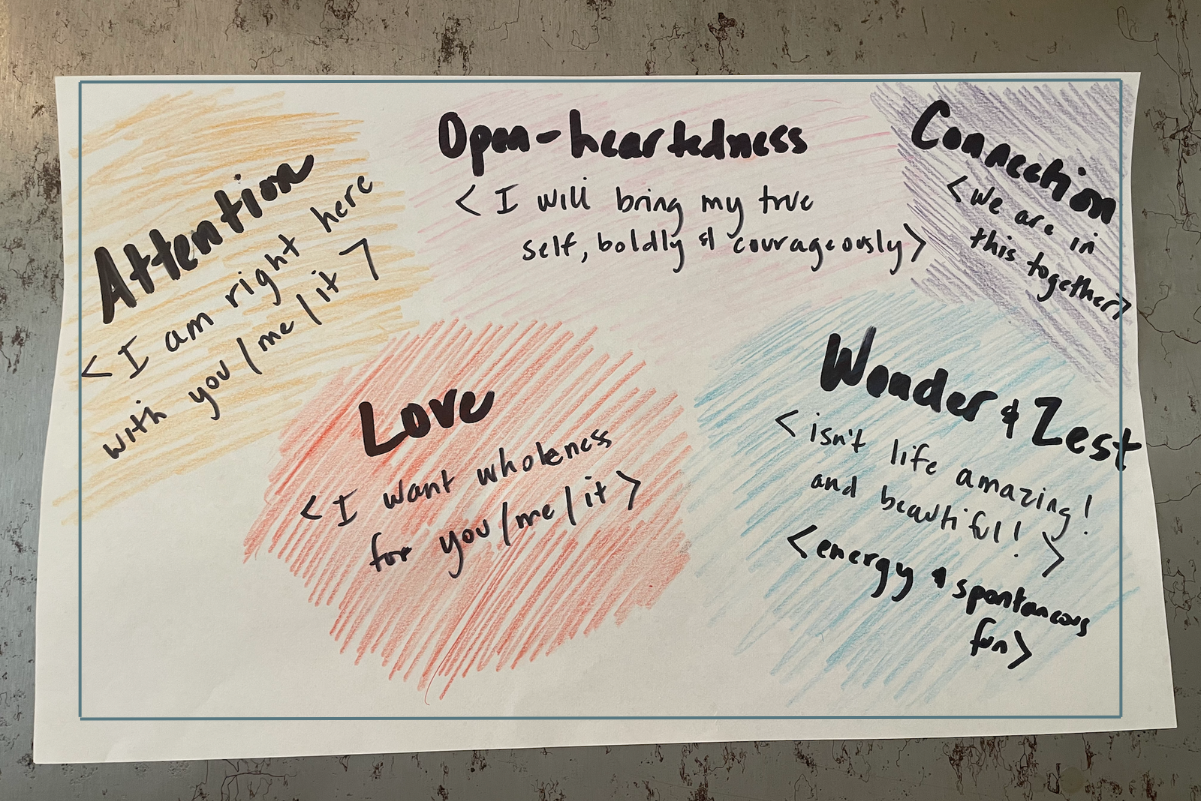 Attention
< I am right here
with you/me/it >
Open-heartedness
< I will bring my true
self, boldly & courageously >
Connection
< We are in
this together >
Love
< I want wholeness
for you/me/it >
Wonder & Zest
< isn't life amazing!
and beautiful! >
< energy & spontaneous
fun >